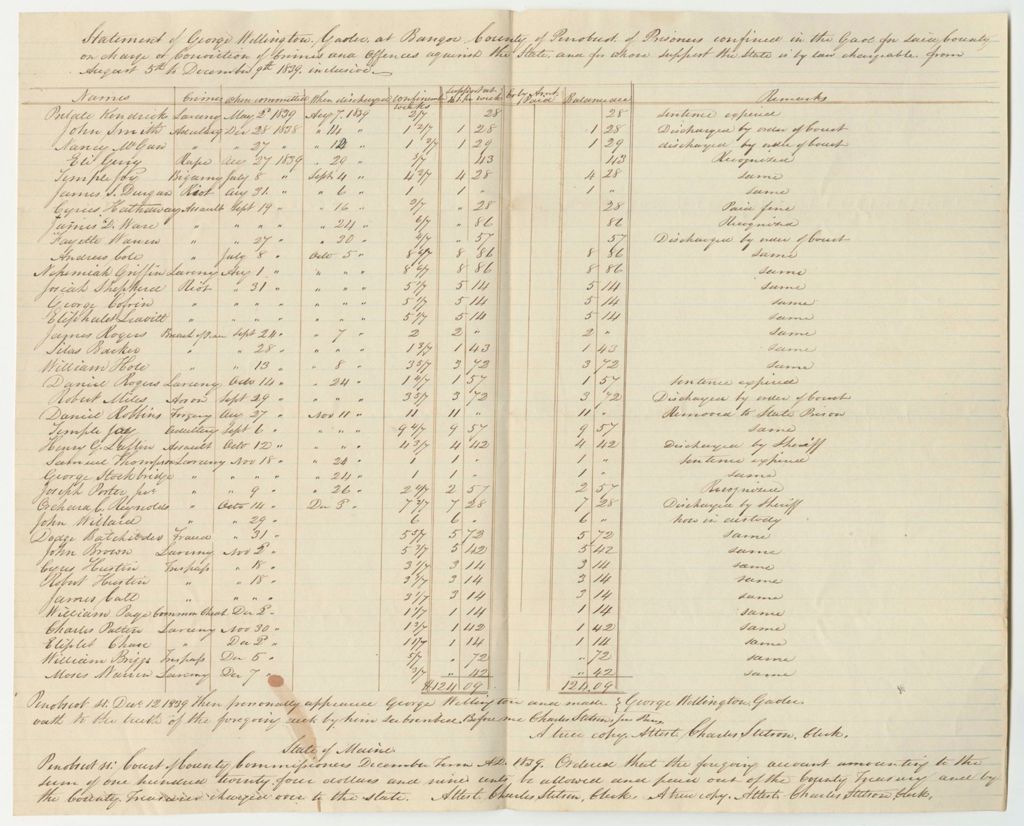 Statement of George Wellington, Gaoler, at Bangor County of Penobscot, of Prisoners confined in the Gaol for said County
on charge or Conviction of Crimes and Offences against the State, and for whose support the State is by law chargeable, from
August 5th to December 9th 1839, inclusive
Names Crimes When committed When discharged Confinement weeks Support at pr week Paid Balance due Remarks
Kendrick Larceny May 2d 1839 Aug 7. 1839 2/7 28 28 Sentence expired
John Smith Adultery Dec 28 1838 " 14 " 1 2/7 1 28 1 28 Discharged by order of Court
Nancy McGan " " 27 " " 12 " 1 2/7 1 29 1 29 discharged by order of Court
Eli Gerry Rape Aug 27 1839 " 29 " 3/7 43 43 Recognized
Temple Joy Bigamy July 8 " Sept 4 " 4 2/7 4 28 4 28 same
James S. Durgan Riot Aug 31. " " 6 " 1 1 " 1 " same
Cyrus Hathaway Assault Sept 19 " " 16 " 2/7 " 28 " 28 Paid fine
James D. Ware " " " " 24 " 6/7 " 86 86 Recognized
Fayette Warren " " 27 " " 20 " 4/7 " 57 57 Discharged by order of Court
Andrew Cole " July 8 " Octo 5 " 8 6/7 8 86 8 86 same
Nehemiah Griffin Larceny Aug 1 " " " " 8 6/7 8 86 8 86 same
Josiah Shepherd Riot " 31 " " " " 5 1/7 5 14 5 14 same
George Cofrin " " " " " " " 5 1/7 5 14 5 14 same
Eliphalet Leavitt " " " " " " " 5 1/7 5 14 5 14 same
James Rogers Breach of Peace Sept 24 " " 7 " 2 2 " 2 " same
Silas Barker " " 28 " " " " 1 3/7 1 43 1 43 same
William Hole " " 13 " " 8 " 3 5/7 3 72 3 72 same
Daniel Rogers Larceny Octo 14 " " 24 " 1 4/7 1 57 1 57 Sentence expired
Robert Miles Arson Sept 29 " " " " 3 5/7 3 72 3 72 Discharged by order of Court
Daniel Robbins Forgery Aug 27 " Nov 11 " 11 11 " 11 " Removed to State Prison
Temple Joy Adultery Sept 6 " " " " 9 4/7 9 57 9 57 same
Henry G. Laflin Assault Octo 12 " " " " 4 3/7 4 42 4 42 Discharged by Sheriff
Samuel Thompson Larceny Nov 18 " " 24 " 1 1 " 1 " Sentence expired
George Stockbridge " " " " 24 " 1 1 " 1 " same
Joseph Porter " " 9 " " 26 " 2 4/7 2 57 2 57 Recognized
C. Reynolds " Octo 14 " Dec 3 " 7 2/7 7 28 7 28 Discharged by Sheriff
John Willard " " 29 " 6 6 " 6 " now in custody
Dodge Fraud " 31 " 5 5/7 5 72 5 72 same
John Brown Larceny Nov 2d " 5 3/7 5 42 5 42 same
Cyrus Hustin Trespass " 18 " 3 1/7 3 14 3 14 same
Robert Hustin " " 18 " 3 1/7 3 14 3 14 same
James Call " " " " 3 1/7 3 14 3 14 same
William Page Common Cheat Dec 2d " 1 1/7 1 14 1 14 same
Charles Patten Larceny Nov 30 " 1 3/7 1 42 1 42 same
Chase " Dec 2d " 1 1/7 1 14 1 14 same
William Briggs Trespass Dec 5 " 5/7 " 72 " 72 same
Moses Warren Larceny Dec 7 " 3/7 " 42 " 42 same
$124.09 124.09
Penobscot ss. Dec 12 1839 then personally appeared George Wellington and made } George Wellington, Gaoler
oath to the truth of the foregoing acct by him subscribed. Before me Charles Stetson, Jus Peace
A true copy. Attest, Charles Stetson, Clerk.
State of Maine
Penobscot ss: Court of County Commissioners December Term A.D. 1839. Ordered that the foregoing account amounting to the
sum of one hundred twenty four dollars and nine cents, be allowed and paid out of the County Treasury and by
the County Treasurer charged over to the State. Attest, Charles Stetson, Clerk. A true copy. Attest, Charles Stetson, Clerk.